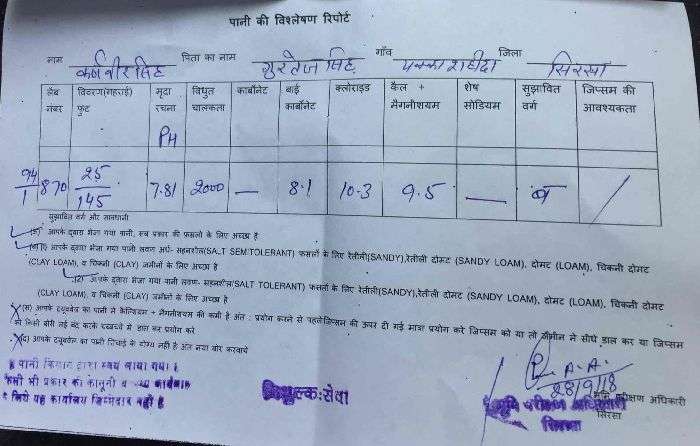 पानी की विश्लेषण रिपोर्ट
नाम कर्मवीर सिंह पिता का नाम गुरतेज सिंह गाँव पक्का शहीदा जिला सिरसा
लैब नंबर विवरण(गहराई) फुट मृदा रचना विधुत चालकता कार्बोनेट बाई कार्बोनेट क्लोराइड कैल + मैगनीशयम शेष सोडियम सुझावित वर्ग जिप्सम की आवश्यकता
PH
94/1 870 25/145 7.81 2000 — 8.1 10.3 9.5 — ब /
सुझावित वर्ग और सावधानी
(अ) आपके द्वारा भेजा गया पानी, सब प्रकार की फसलों के लिए अच्छा है
(ब) (1) आपके द्वारा भेजा गया पानी लवण अर्ध- सहनशील(SALT SEMITOLERANT) फसलों के लिए रेतीली(SANDY),रेतीली दोमट (SANDY LOAM), दोमट (LOAM), चिकनी दोमट
(CLAY LOAM), व चिकनी (CLAY) जमीनों के लिए अच्छा है
(2) आपके द्वारा भेजा गया पानी लवण- सहनशील(SALT TOLERANT) फसलों के लिए रेतीली(SANDY),रेतीली दोमट (SANDY LOAM), दोमट (LOAM), चिकनी दोमट
(CLAY LOAM), व चिकनी (CLAY) जमीनों के लिए अच्छा है
(स) आपके ट्यूबवेल का पानी में कैल्शियम + मैगनीशयम की कमी है अंत : प्रयोग करने से पहले जिप्सम की ऊपर दी गई मात्रा प्रयोग करे जिप्सम को या तो जमीन में सीधे डाल कर या जिप्सम
को किसी बोरी में बंद करके में डाल कर प्रयोग करे
(द) आपके ट्यूबवेल का पानी सिंचाई के योग्य नहीं है अंत नया बोर करवाये
पानी किसान द्वारा स्वयं लाया गया।
किसी भी प्रकार का कानूनी व
के लिये यह कार्यालय जिम्मेदार नहीं है
निशुल्क:सेवा
28/9/18
भूमि परीक्षण अधिकारी
सिरसा
भूमि परीक्षण अधिकारी
सिरसा